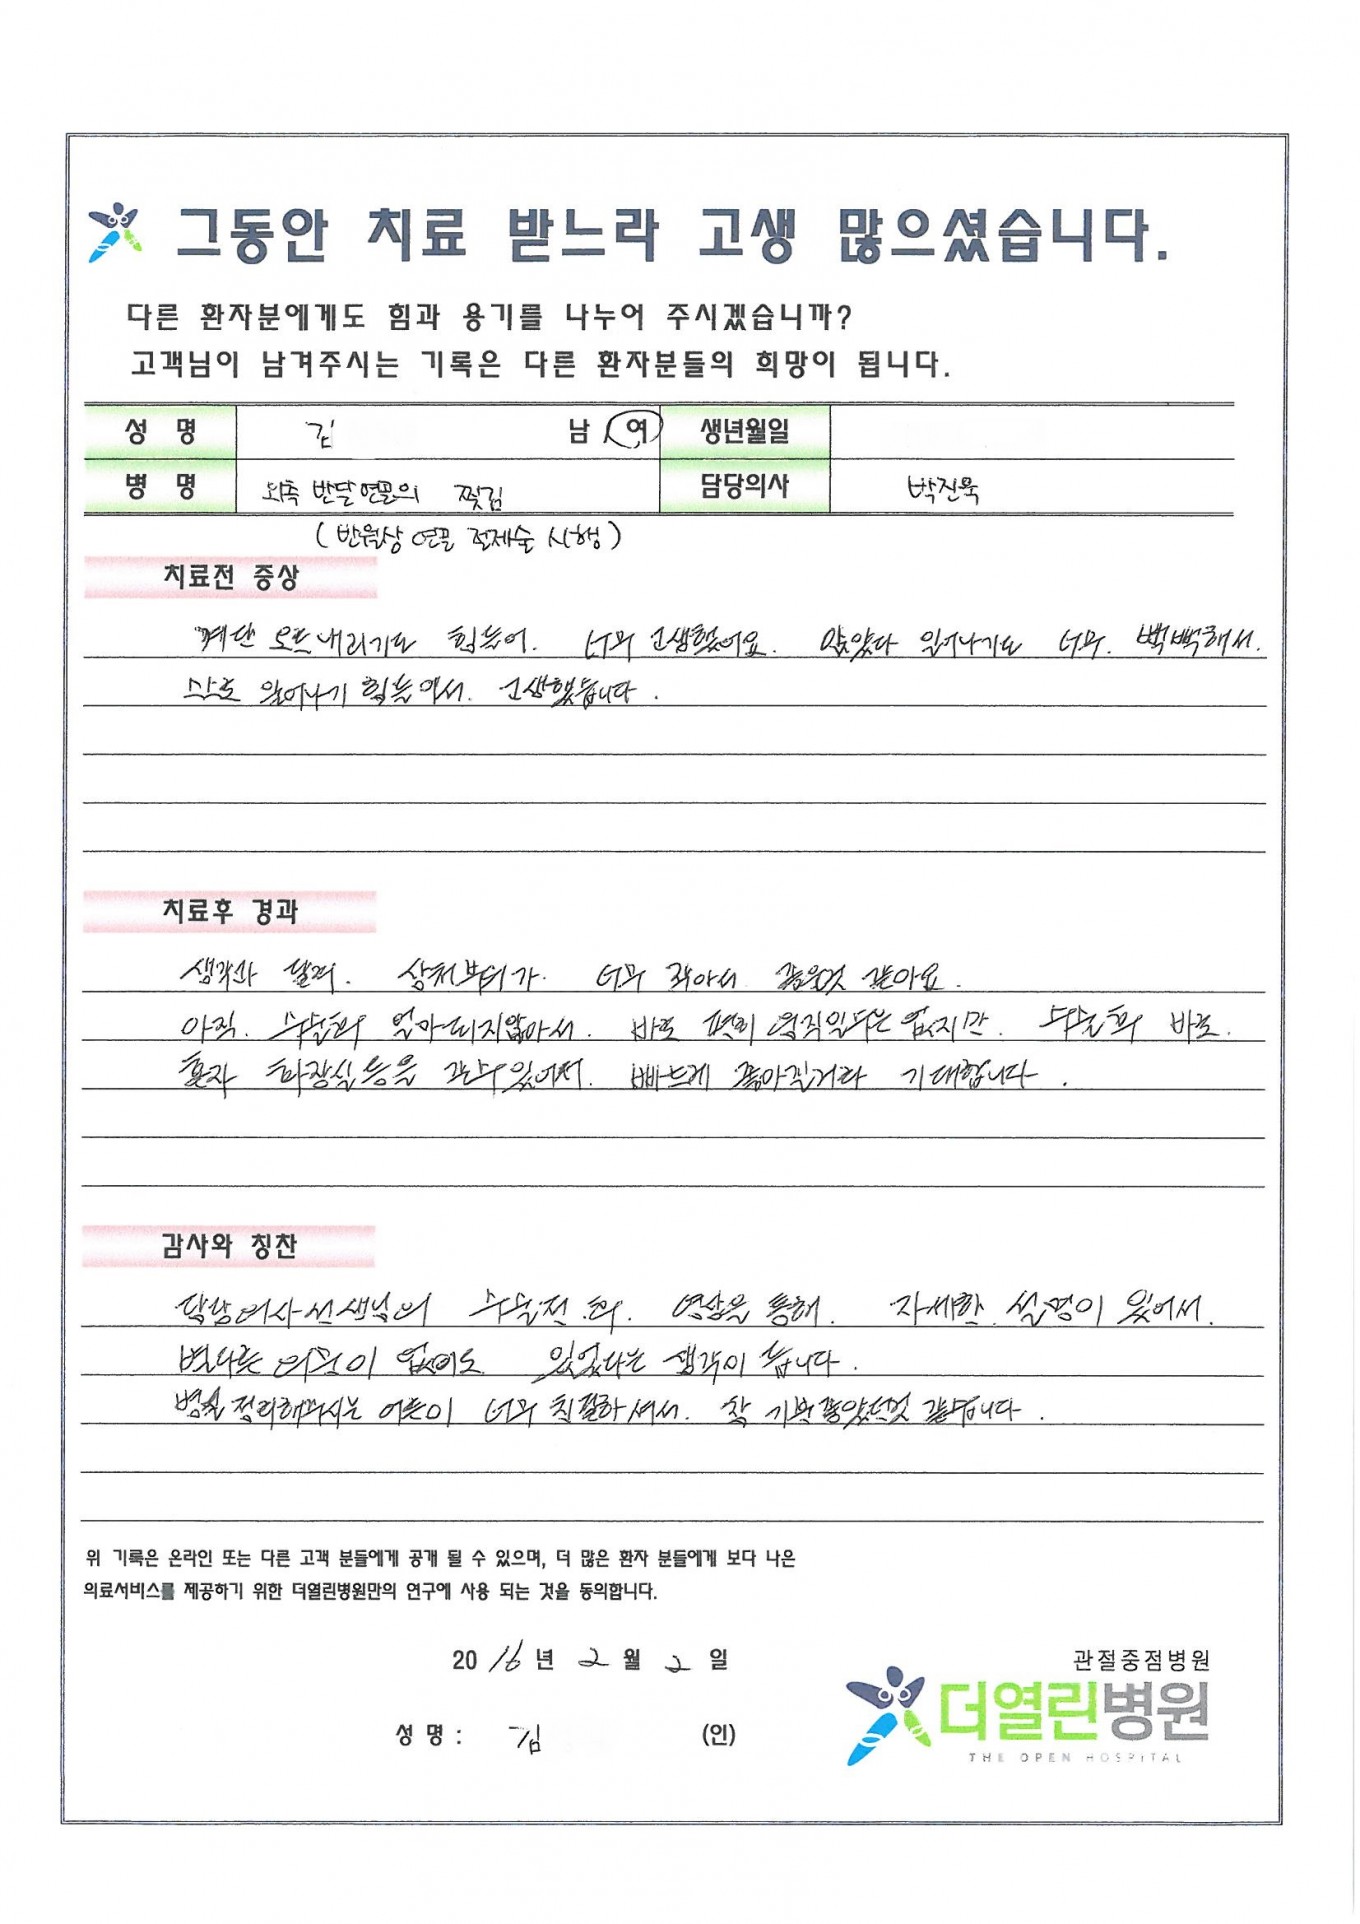 그동안 치료 받느라 고생 많으셨습니다.
다른 환자분에게도 힘과 용기를 나누어 주시겠습니까?
고객님이 남겨주시는 기록은 다른 환자분들의 희망이 됩니다.
성 명 김 남 여 생년월일
병 명 외측 반달연골의 찢김 담당의사 박진욱
(반월상 연골 절제술 시행)
치료전 증상
계단 오르내리기도 힘들어. 너무 고생했어요. 앉았다 일어나기도 너무. 뻑뻑해서.
스스로 일어나기 힘들어서. 고생했습니다.
치료후 경과
생각과 달리. 상처부위가. 너무 작아서 좋은것 같아요.
아직. 수술후 얼마되지않아서. 바로 편히 움직일수는 없지만. 수술후 바로.
혼자 화장실등을 갈수있어서. 빠르게 좋아질거라 기대합니다.
감사와 칭찬
담당의사선생님의 수술전.후. 영상을 통해. 자세한 설명이 있어서.
별다른 의문이 없이도 있었다는 생각이 듭니다.
병실정리해주시는 어른이 너무 친절하셔서. 참 기분좋았던것 같습니다.
위 기록은 온라인 또는 다른 고객 분들에게 공개 될 수 있으며, 더 많은 환자 분들에게 보다 나은
의료서비스를 제공하기 위한 더열린병원만의 연구에 사용 되는 것을 동의합니다.
2016년 2월 2일
성 명 : 김 (인)
관절중점병원
더열린병원
THE OPEN HOSPITAL